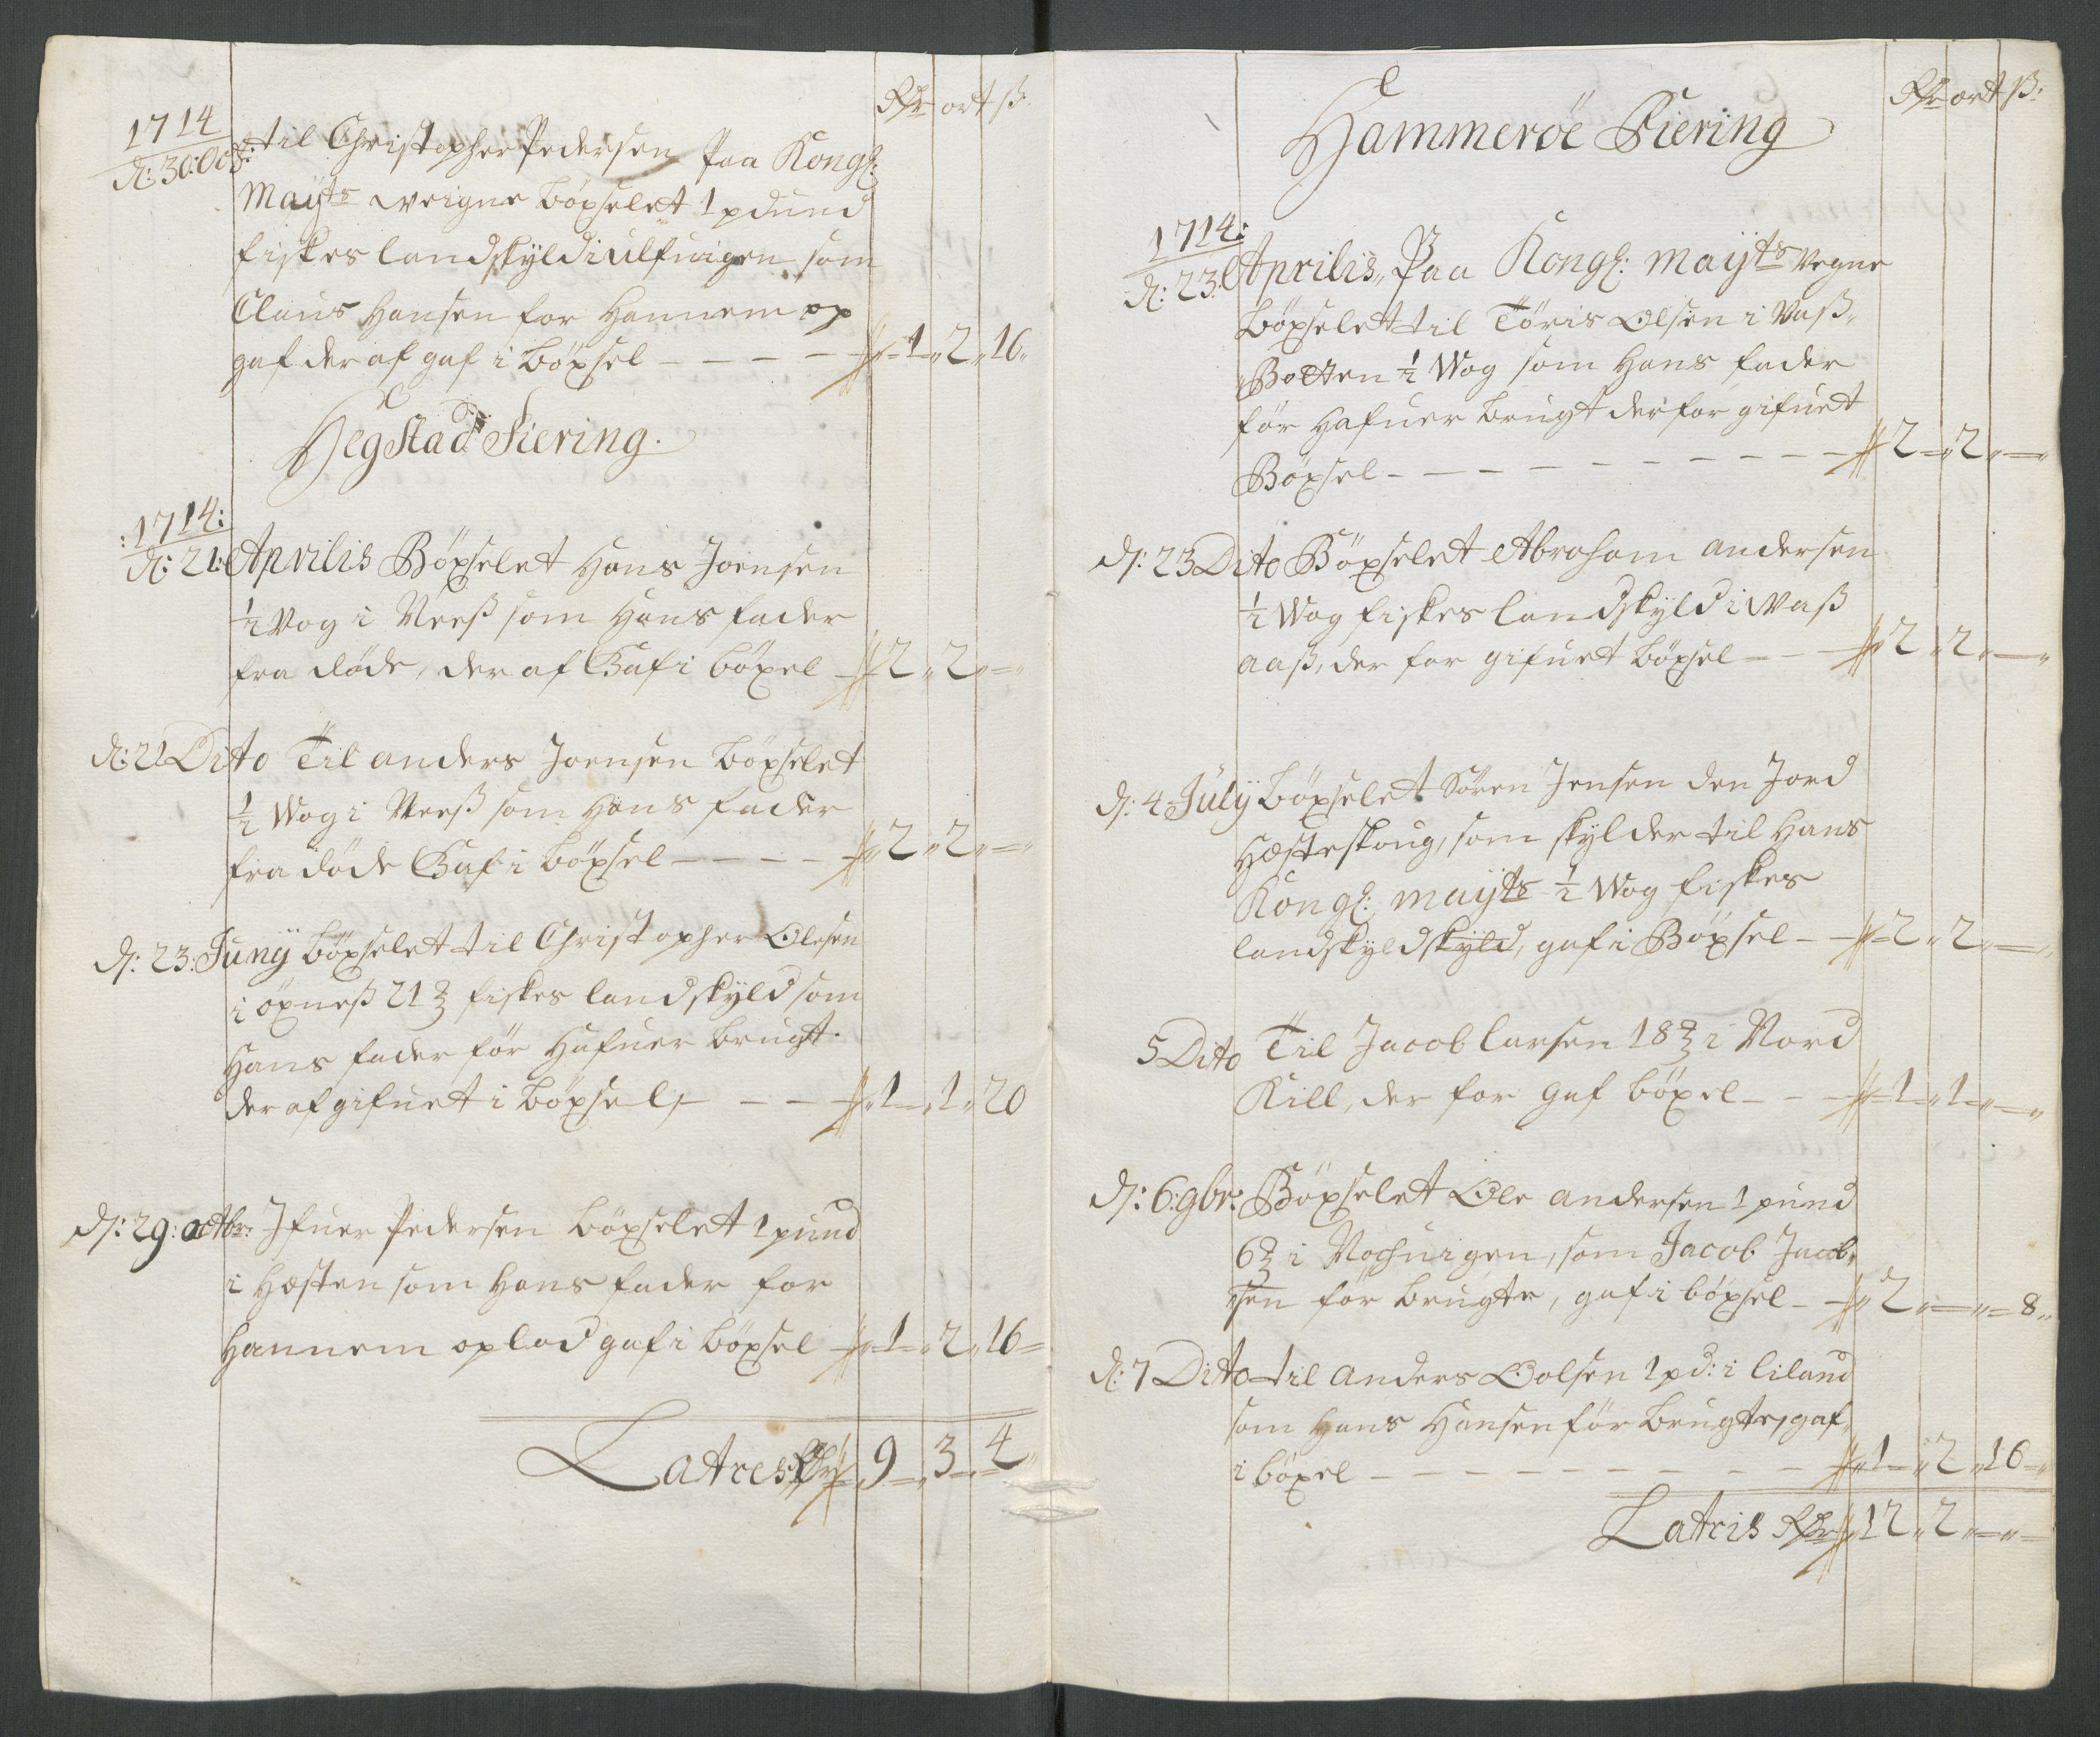 Rdr ort ß:
1714
d: 30: Oct: til Christopher Pedersen Paa Kongl:
Maÿts weigne böxselet 1 pdund
fiskes landskyld i Ulfuigen som
Claus Hansen for Hannem op
gaf der af gaf i böxsel - - - - 1 „ 2 „ 16 „
Hegstad Fiering.
:1714:
d: 21: Aprilis Böxselet Hans Joensen
½ Vog i Neeß som Hans fader
fra döde, der af Gaf i böxel - 2 „ 2 „ — „
d: 21 Dito Til anders Joensen böxselet
½ Wog i Neeß som Hans fader
fra döde Gaf i böxsel - - - - 2 „ 2 „ — „
d: 23: Junÿ böxselet til Christopher Olesen
i öxneß 21 ℔ fiskes landskyld som
Hans fader för Hafuer brugt.
der af gifuet i böxsel - - - 1 „ 1 „ 20
d: 29: octbr: Ifuer Pedersen böxselet 1 pund
i Hæsten som Hans fader for
Hannem oplod gaf i böxsel - 1 „ 2 „ 16 „
Latres Rdr 9 „ 3 „ 4 „
Rdr ort ß:
Hammeröe Fiering
1714:
d: 23: Aprilis, Paa Kongl: Maÿts Vegne
böxselet til Töris Olsen i Vaß„
„Botten ½ Wog som Hans fader
för Hafuer brugt derfor gifuet
Böxsel - - - - - - - - - 2 „ 2 „ — „
d: 23 Dito Böxselet Abraham andersen
½ Wog fiskes landskyld i Waß
aaß, der for gifuet böxsel - - - 2 „ 2 „ — „
d: 4 Julÿ böxselet Sören Jensen den Jord
Hæsteskoug, som skylder til Hans
Kongl: maÿts ½ Wog fiskes
landskyldskyld, gaf i Böxsel - - 2 „ 2 „ — „
5 Dito Til Jacob larsen 18 ℔ i Nord
Kill, der for gaf böxel - - - 1 „ 1 „ — „
d: 6: 9br: Böxselet Ole andersen 1 pund
6 ℔ i Nochuigen, som Jacob Jacob„
„sen för brugte, gaf i böxsel - 2 „ — „ 8 „
d: 7 Dito til anders Oolsen 1 pd: i liland
som Hans Hansen för brugte, gaf
i böxel - - - - - - - - - 1 „ 2 „ 16 „
Latris Rdr 12 „ 2 „ — „